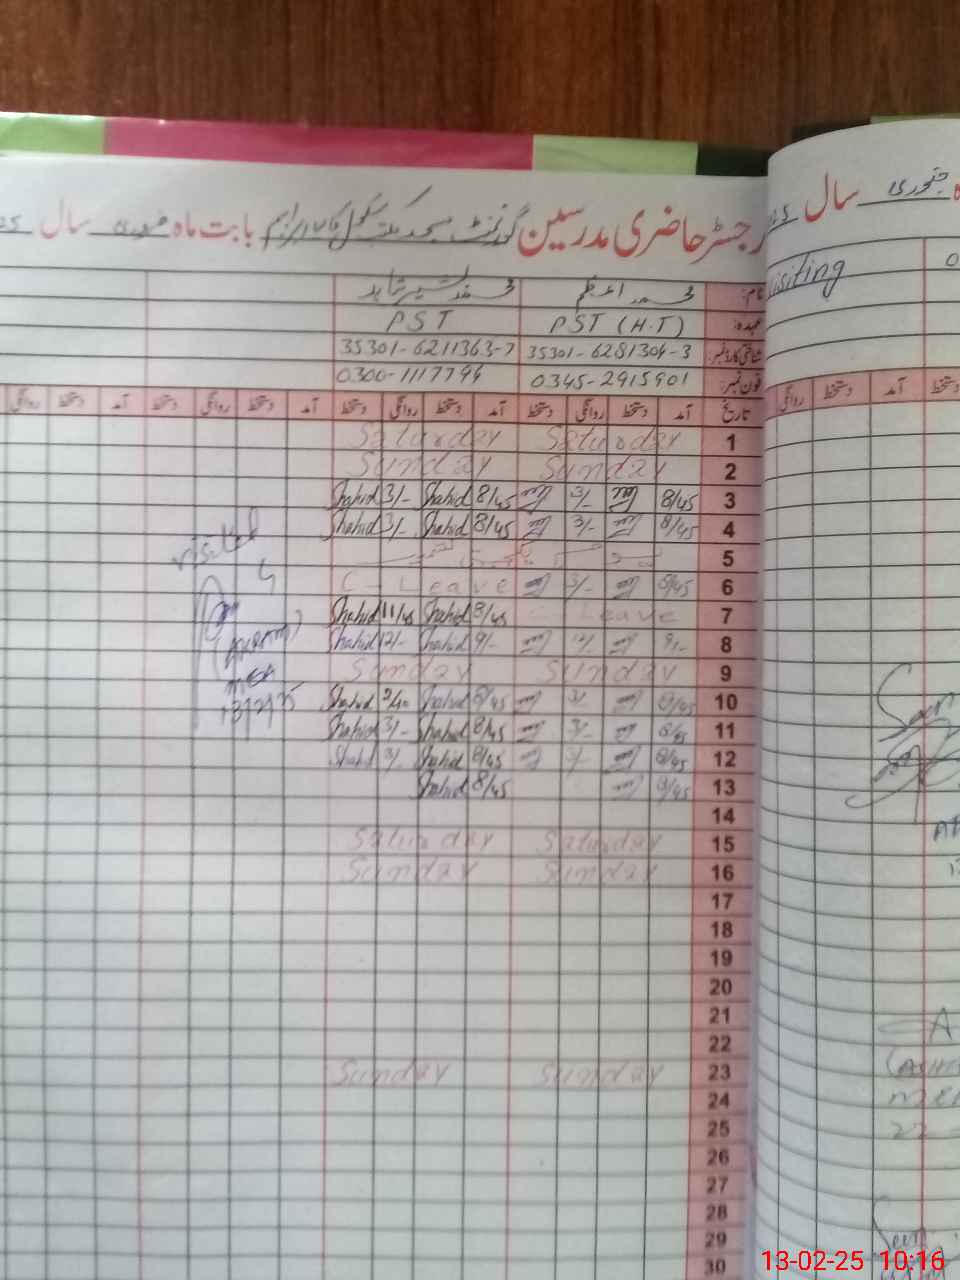 رجسٹر حاضری مدرسین گورنمنٹ مسجد مکتب سکول بابت ماہ فروری سال
نام: محمد اعظم محمد شبیر شاہد
عہدہ: PST (H.T) PST
شناختی کارڈ نمبر: 35301-6281304-3 35301-6211363-7
فون نمبر: 0345-2915901 0300-1117794
تاریخ آمد دستخط روانگی دستخط آمد دستخط روانگی دستخط آمد دستخط روانگی دستخط آمد دستخط روانگی
1 Saturday Saturday
2 Sunday Sunday
3 8/45 3/- 8/45 Shahid 3/- Shahid
4 8/45 3/- 8/45 Shahid 3/- Shahid
5
6 8/45 3/- C-Leave
7 Leave 8/45 Shahid 11/45 Shahid
8 9/- 12/- 9/- Shahid 12/- Shahid
9 Sunday Sunday
10 8/45 3/- 8/45 Shahid Shahid
11 8/45 3/- 8/45 Shahid 3/- Shahid
12 8/45 3/- 8/45 Shahid 3/- Shahid
13 8/45 8/45 Shahid
14
15 Saturday Saturday
16 Sunday Sunday
17
18
19
20
21
22
23 Sunday Sunday
24
25
26
27
28
29
30
visited
(AKRAM)
MEA
13/2/25
سال جنوری
Visiting
دستخط آمد دستخط روانگی
22
Seen
13-02-25 10:16